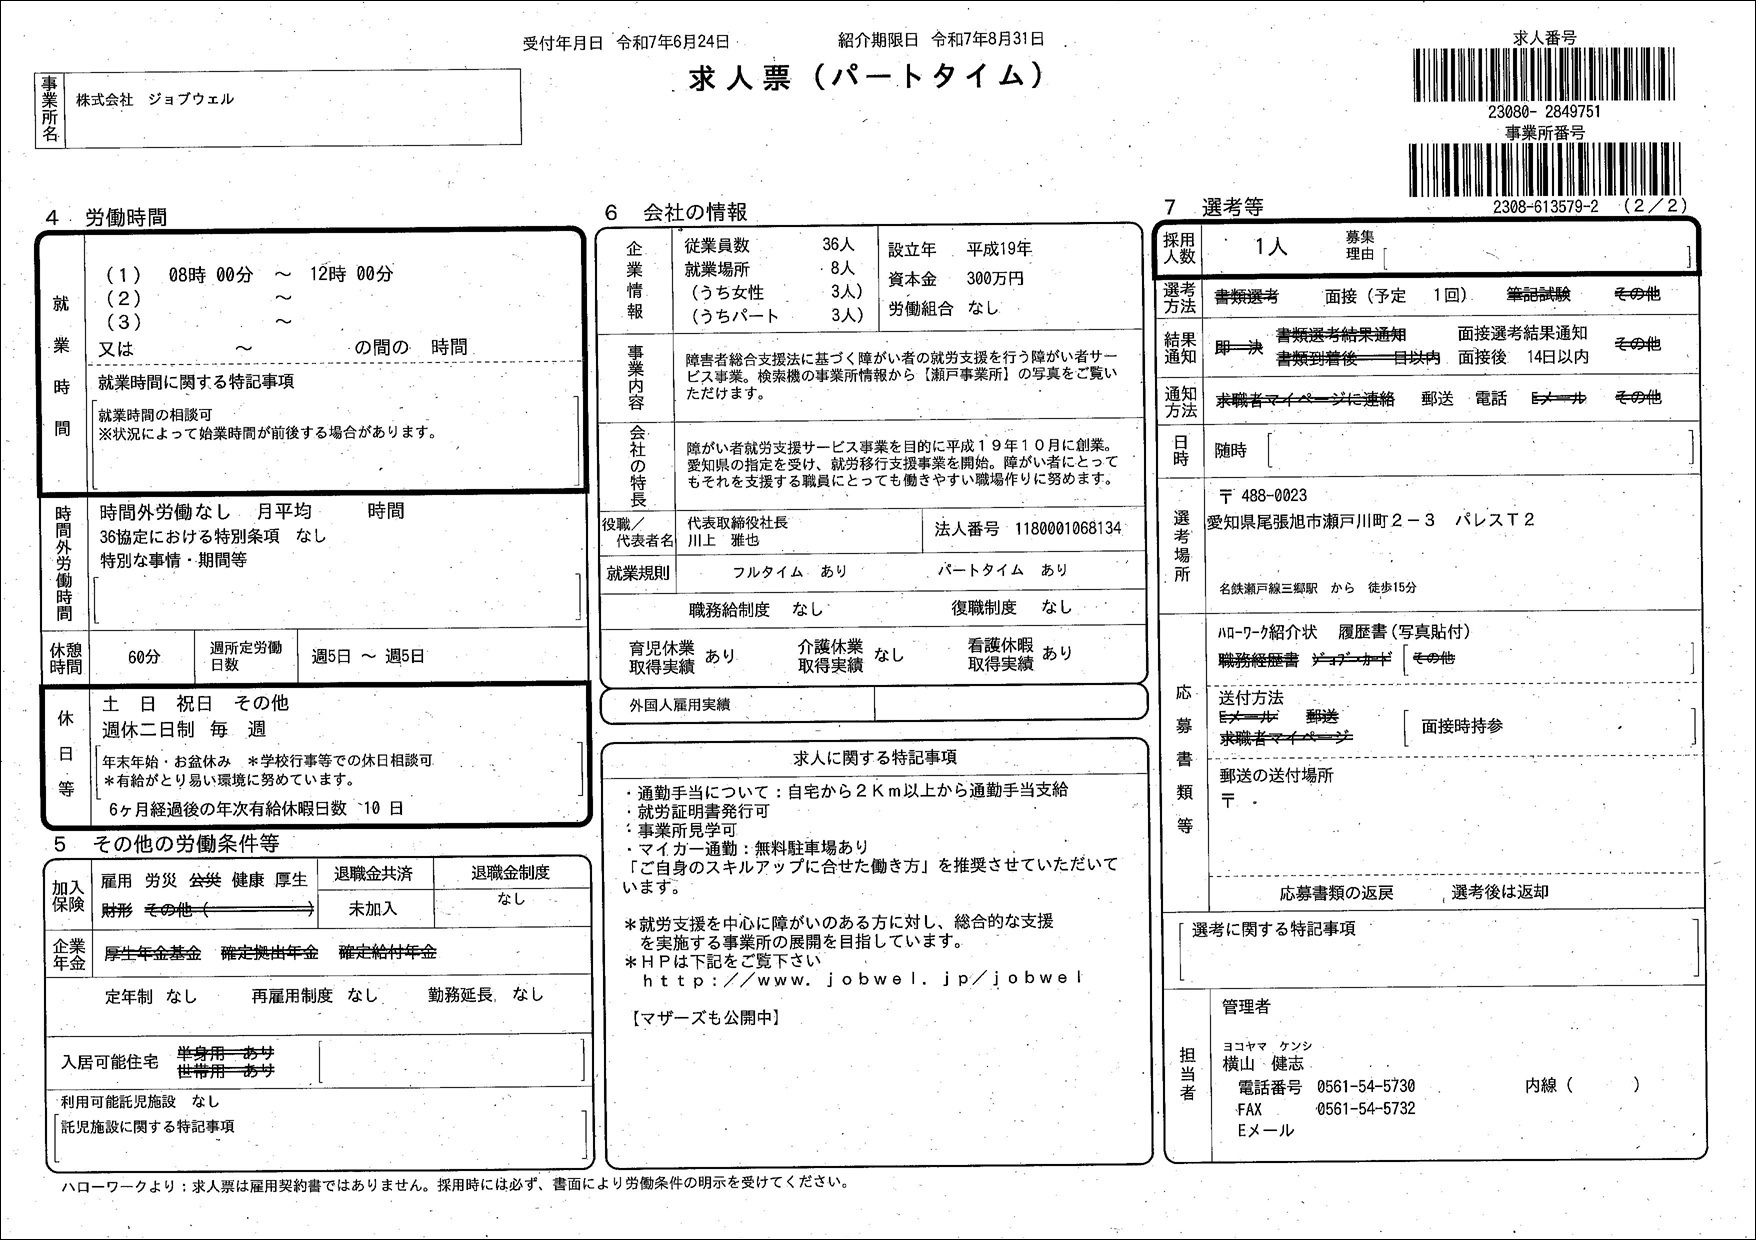 受付年月日 令和7年6月24日 紹介期限日 令和7年8月31日
求人票（パートタイム）
求人番号
23080- 2849751
事業所番号
2308-613579-2 （２／２）
事業所名
株式会社 ジョブウェル
４ 労働時間
就業時間
（１） 08時 00分 ～ 12時 00分
（２） ～
（３） ～
又は ～ の間の 時間
就業時間に関する特記事項
就業時間の相談可
※状況によって始業時間が前後する場合があります。
時間外労働時間
時間外労働なし 月平均 時間
36協定における特別条項 なし
特別な事情・期間等
休憩時間
60分
週所定労働日数
週5日 ～ 週5日
休日等
土 日 祝日 その他
週休二日制 毎 週
年末年始・お盆休み ＊学校行事等での休日相談可
＊有給がとり易い環境に努めています。
6ヶ月経過後の年次有給休暇日数 10 日
５ その他の労働条件等
加入保険
雇用 労災 公災 健康 厚生
財形 その他（ ）
退職金共済
未加入
退職金制度
なし
企業年金
厚生年金基金 確定拠出年金 確定給付年金
定年制 なし 再雇用制度 なし 勤務延長 なし
入居可能住宅
単身用 あり
世帯用 あり
利用可能託児施設 なし
託児施設に関する特記事項
６ 会社の情報
企業情報
従業員数 36人
就業場所 8人
（うち女性 3人）
（うちパート 3人）
設立年 平成19年
資本金 300万円
労働組合 なし
事業内容
障害者総合支援法に基づく障がい者の就労支援を行う障がい者サー
ビス事業。検索機の事業所情報から【瀬戸事業所】の写真をご覧い
ただけます。
会社の特長
障がい者就労支援サービス事業を目的に平成１９年１０月に創業。
愛知県の指定を受け、就労移行支援事業を開始。障がい者にとって
もそれを支援する職員にとっても働きやすい職場作りに努めます。
役職／代表者名
代表取締役社長
川上 雅也
法人番号 1180001068134
就業規則 フルタイム あり パートタイム あり
職務給制度 なし 復職制度 なし
育児休業取得実績 あり 介護休業取得実績 なし 看護休暇取得実績 あり
外国人雇用実績
求人に関する特記事項
・通勤手当について：自宅から２Ｋｍ以上から通勤手当支給
・就労証明書発行可
・事業所見学可
・マイカー通勤：無料駐車場あり
「ご自身のスキルアップに合せた働き方」を推奨させていただいて
います。
＊就労支援を中心に障がいのある方に対し、総合的な支援
を実施する事業所の展開を目指しています。
＊ＨＰは下記をご覧下さい
ｈｔｔｐ：／／ｗｗｗ．ｊｏｂｗｅｌ．ｊｐ／ｊｏｂｗｅｌ
【マザーズも公開中】
７ 選考等
採用人数
1人
募集理由
選考方法
書類選考 面接（予定 1回） 筆記試験 その他
結果通知
即 決 書類選考結果通知 面接選考結果通知 その他
書類到着後 日以内 面接後 14日以内
通知方法
求職者マイページに連絡 郵送 電話 Eメール その他
日時
随時
選考場所
〒 488-0023
愛知県尾張旭市瀬戸川町２－３ パレスＴ２
名鉄瀬戸線三郷駅 から 徒歩15分
応募書類等
ﾊﾛｰﾜｰｸ紹介状 履歴書(写真貼付)
職務経歴書 ｼﾞｮﾌﾞ･ｶｰﾄﾞ その他
送付方法
Eメール 郵送
求職者マイページ
面接時持参
郵送の送付場所
〒 -
応募書類の返戻 選考後は返却
選考に関する特記事項
担当者
管理者
ヨコヤマ ケンシ
横山 健志
電話番号 0561-54-5730 内線（ ）
FAX 0561-54-5732
Eメール
ハローワークより：求人票は雇用契約書ではありません。採用時には必ず、書面により労働条件の明示を受けてください。